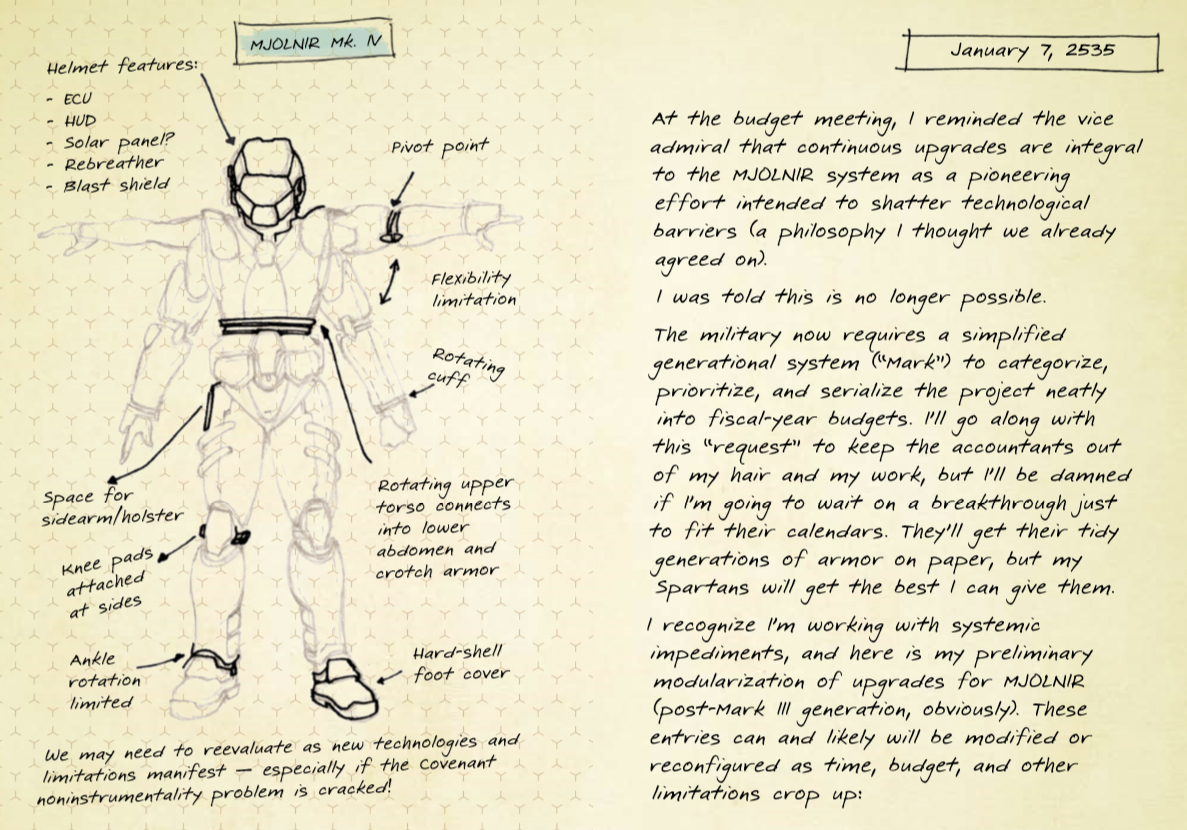 MJOLNIR Mk. IV
Helmet features:
- ECU
- HUD
- Solar panel?
- Rebreather
- Blast shield
Pivot point
Flexibility
limitation
Rotating
cuff
Space for
sidearm/holster
Rotating upper
torso connects
into lower
abdomen and
crotch armor
Knee pads
attached
at sides
Ankle
rotation
limited
Hard-shell
foot cover
We may need to reevaluate as new technologies and
limitations manifest — especially if the Covenant
noninstrumentality problem is cracked!
January 7, 2535
At the budget meeting, I reminded the vice
admiral that continuous upgrades are integral
to the MJOLNIR system as a pioneering
effort intended to shatter technological
barriers (a philosophy I thought we already
agreed on).
I was told this is no longer possible.
The military now requires a simplified
generational system ("Mark") to categorize,
prioritize, and serialize the project neatly
into fiscal-year budgets. I'll go along with
this "request" to keep the accountants out
of my hair and my work, but I'll be damned
if I'm going to wait on a breakthrough just
to fit their calendars. They'll get their tidy
generations of armor on paper, but my
Spartans will get the best I can give them.
I recognize I'm working with systemic
impediments, and here is my preliminary
modularization of upgrades for MJOLNIR
(post-Mark III generation, obviously). These
entries can and likely will be modified or
reconfigured as time, budget, and other
limitations crop up: